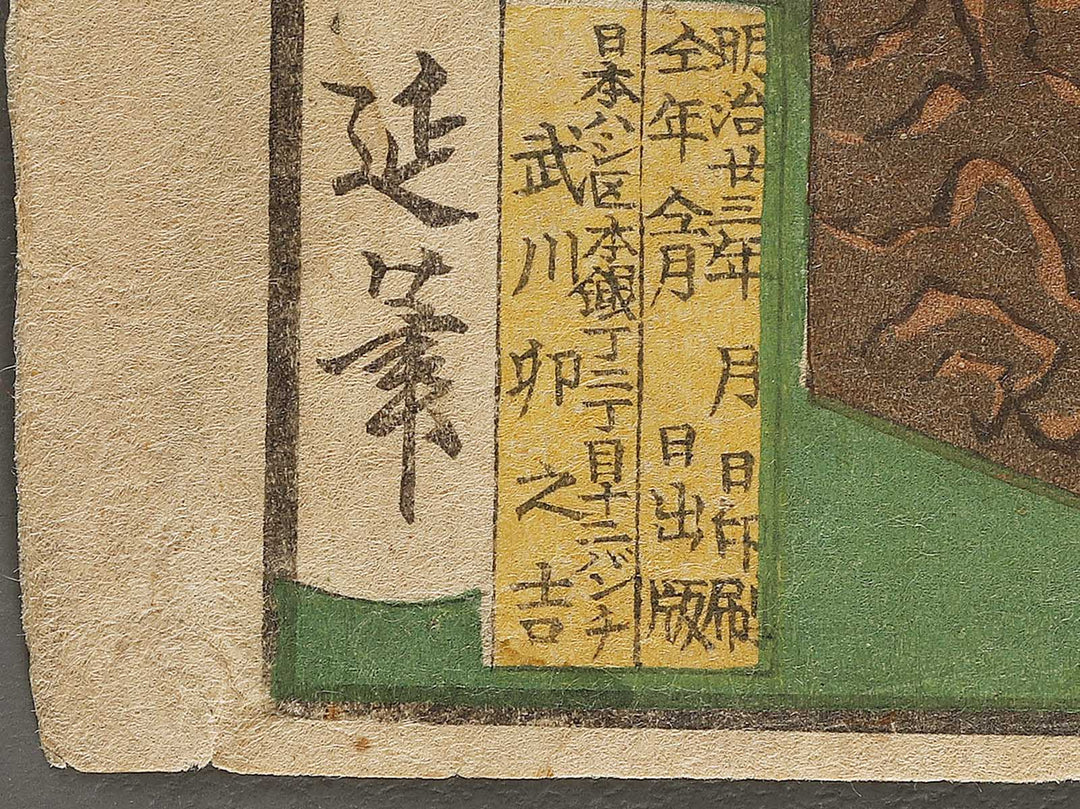 明治廿三年 月 日印刷
仝年仝月 日出版
日本ハシ区本銀丁二丁目十二バンチ
武川卯之吉
延筆